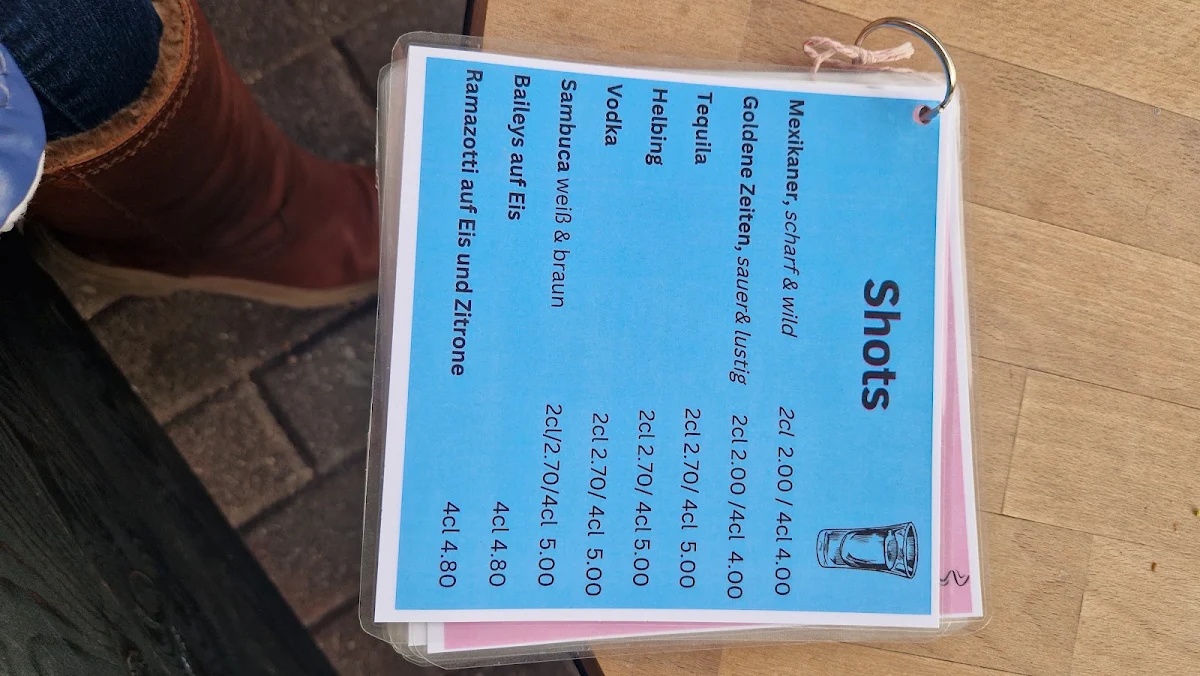 Shots
Mexikaner, scharf & wild 2cl 2.00 / 4cl 4.00
Goldene Zeiten, sauer& lustig 2cl 2.00 /4cl 4.00
Tequila 2cl 2.70/ 4cl 5.00
Helbing 2cl 2.70/ 4cl 5.00
Vodka 2cl 2.70/ 4cl 5.00
Sambuca weiß & braun 2cl/2.70/4cl 5.00
Baileys auf Eis 4cl 4.80
Ramazotti auf Eis und Zitrone 4cl 4.80